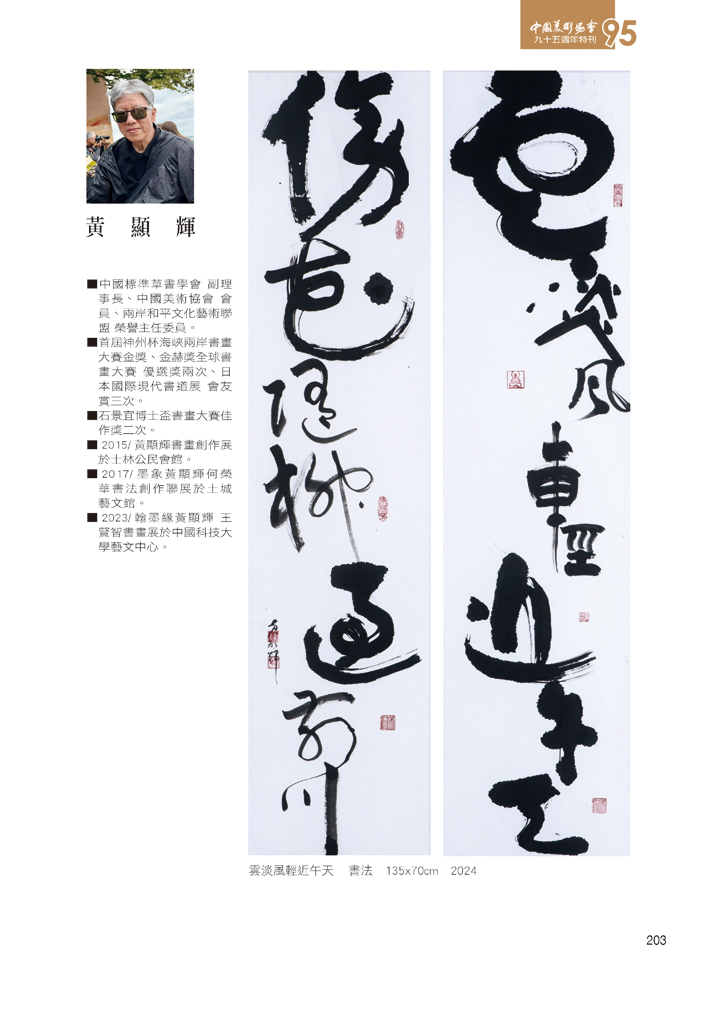 中國美術協會
九十五週年特刊
95
黃顯輝
■中國標準草書學會 副理
事長、中國美術協會 會
員、兩岸和平文化藝術聯
盟 榮譽主任委員。
■首屆神州杯海峽兩岸書畫
大賽金獎、金赫獎全球書
畫大賽 優選獎兩次、日
本國際現代書道展 會友
賞三次。
■石景宜博士盃書畫大賽佳
作獎二次。
■ 2015/ 黃顯輝書畫創作展
於士林公民會館。
■ 2017/ 墨象黃顯輝何榮
華書法創作聯展於土城
藝文館。
■ 2023/ 翰墨緣黃顯輝 王
賢智書畫展於中國科技大
學藝文中心。
雲淡風輕近午天
傍花隨柳過前川
雲淡風輕近午天 書法 135x70cm 2024
203